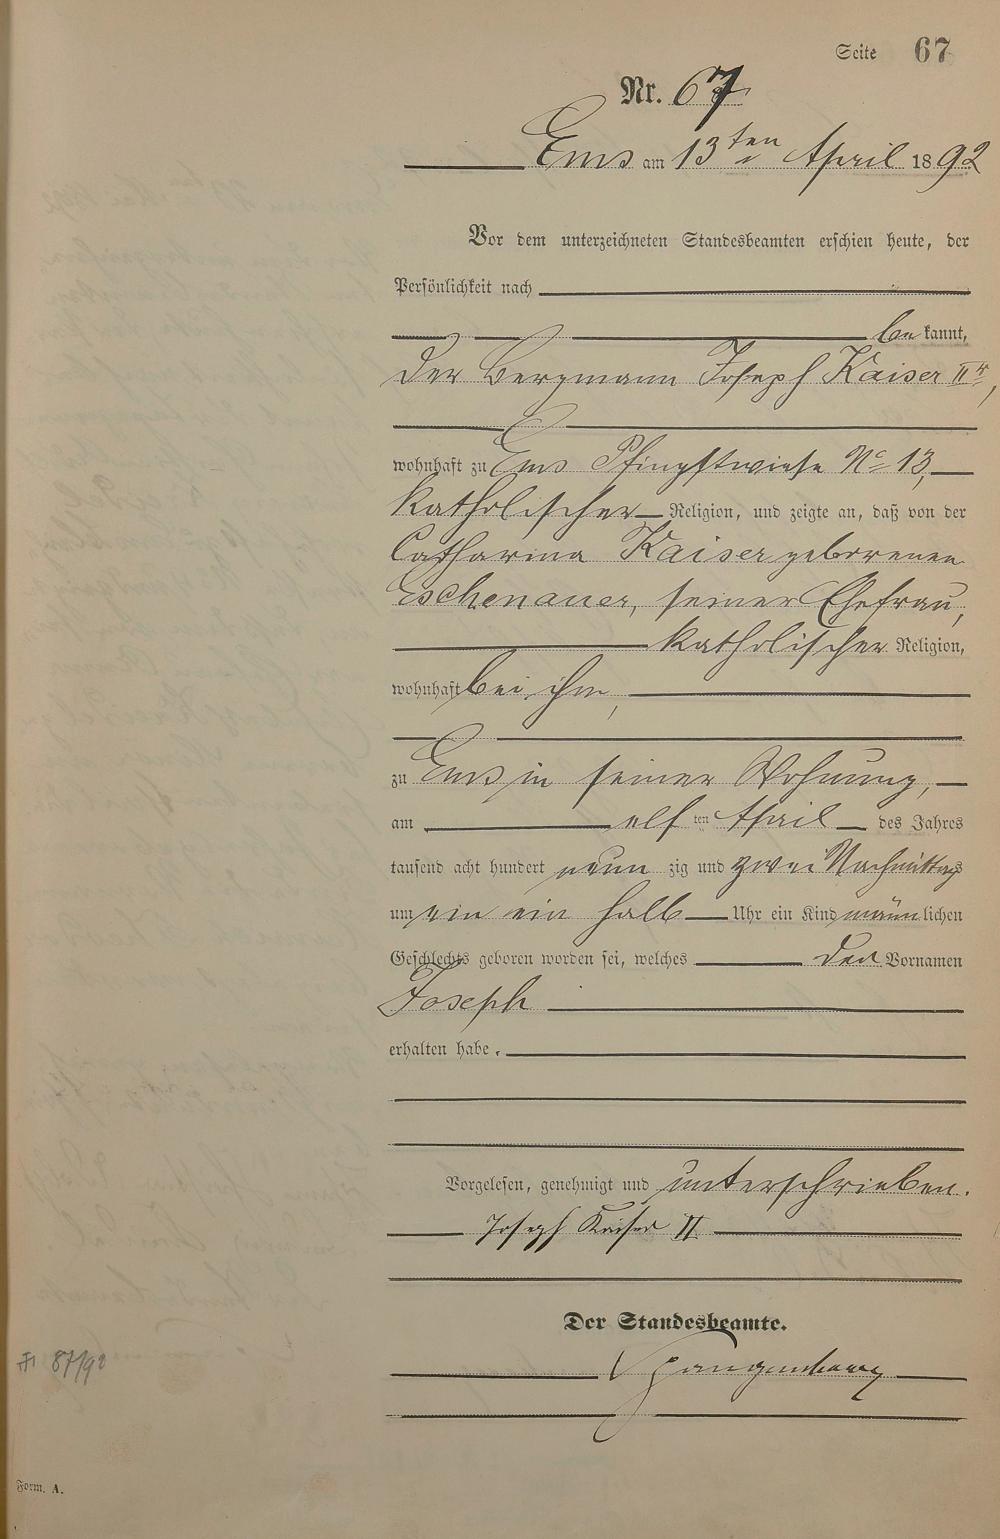 Seite 67
Nr. 67
Ems am 13ten April 1892
Vor dem unterzeichneten Standesbeamten erschien heute, der
Persönlichkeit nach
bekannt,
der Bergmann Joseph Kaiser IIr,
wohnhaft zu Ems Pfingstwiese No 13,
katholischer Religion, und zeigte an, daß von der
Catharina Kaiser geborenen
Eschenauer, seiner Ehefrau,
katholischer Religion,
wohnhaft bei ihm,
zu Ems in seiner Wohnung,
am elf ten April des Jahres
tausend acht hundert neun zig und zwei Nachmittags
um ein ein halb Uhr ein Kind männlichen
Geschlechts geboren worden sei, welches den Vornamen
Joseph
erhalten habe.
Vorgelesen, genehmigt und unterschrieben.
Joseph Kaiser II
Der Standesbeamte.
Spangenberg
87/92
Form. A.